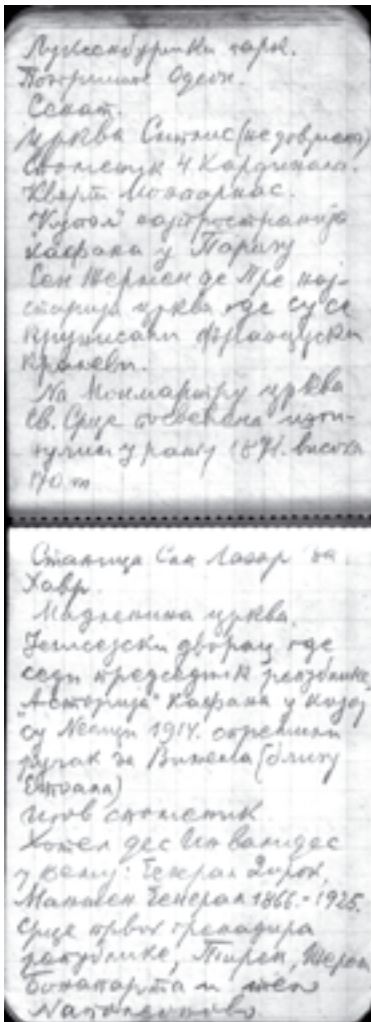 Луксенбуршки парк.
Позориште Одеон.
Сенат.
црква Сиплис (недовршена)
Споменик 4 Кардинала.
Кварт Монпарнас.
"Купол" најпространија
кафана у Паризу
Сен Жермен де Пре нај-
старија црква где су се
крунисали француски
краљеви.
На Монмартру црква
Св. Срце посвећена изги-
нулим у рату 1871. висока
170 m
Станица Сен Лазар за
Хавр.
Мадленина црква.
Јелисејски дворац где
седи председник републике
"Асторија" Кафана у којој
су Немци 1914. спремали
ручак за Виљема (близу
Етоала)
његов споменик
Хотел дес Инвалидес
у њему: Генерал Дирок,
Манжен Генерал 1866.-1925.
Срце првог гренадира
републике, Тирен, Жером
Бонапарта и тело
Наполеоново